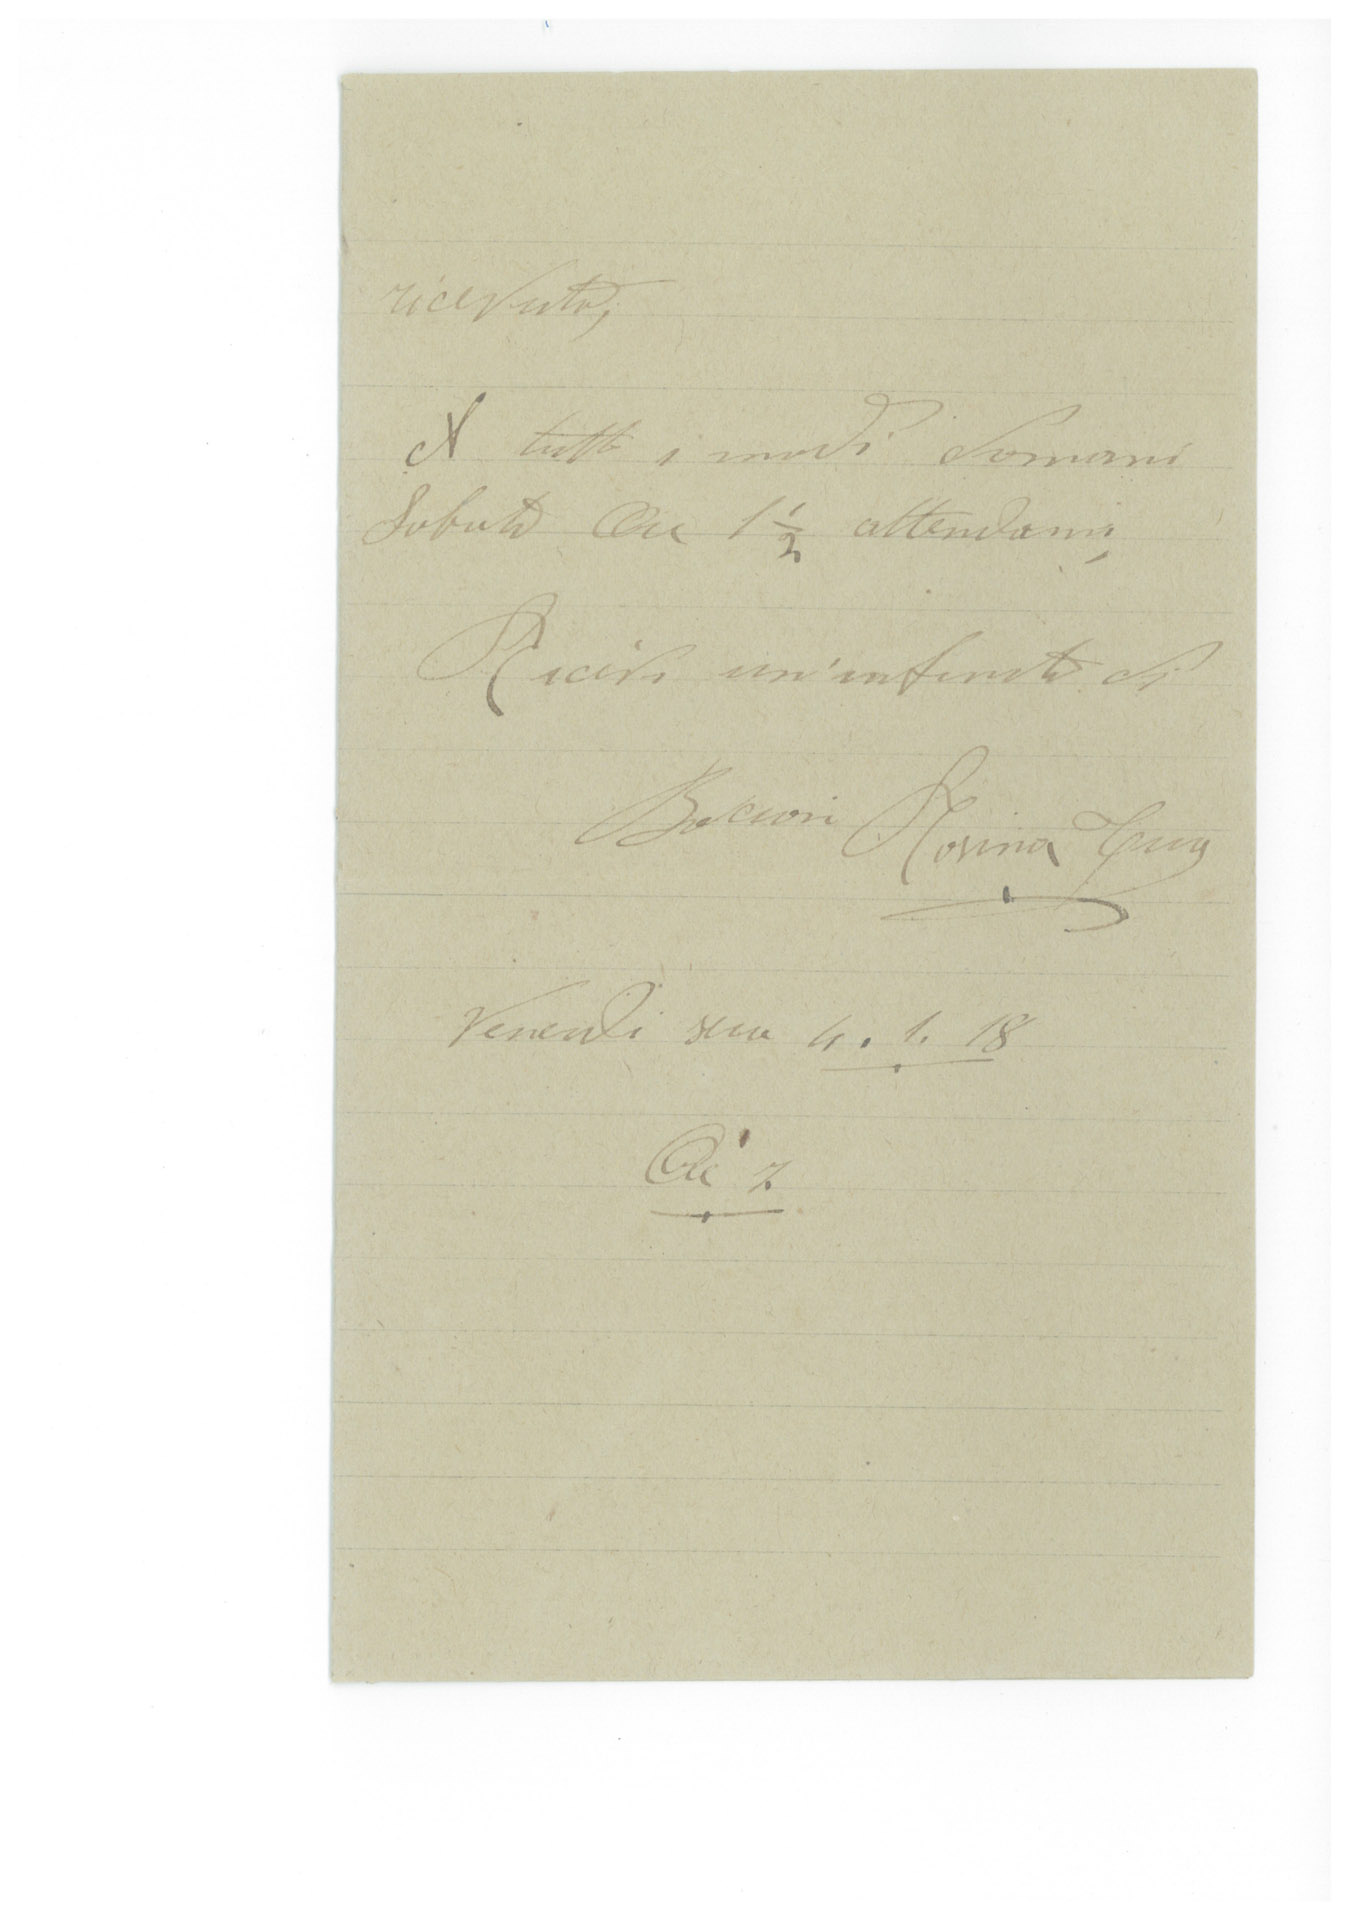 ricevuto,
A tutti i modi domani
Sabato Ore 1 1/2 attendami,
Ricevi un'infinità di
Bacioni Rosina Tua
Venerdi sera 4. 1. 18
Ore 7.